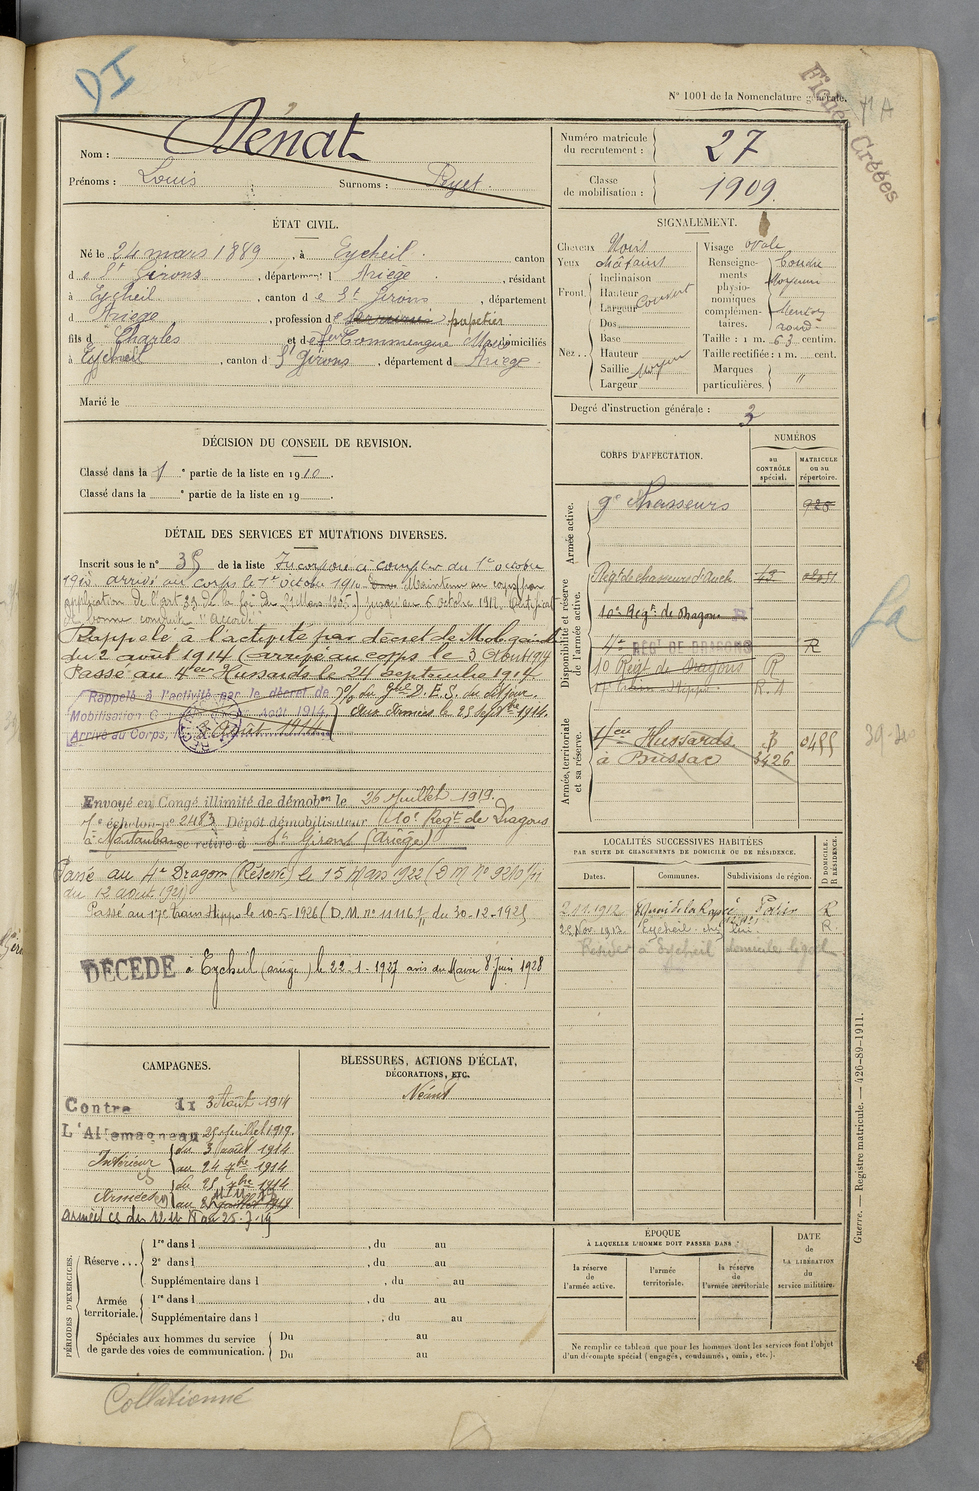 DI
N° 1001 de la Nomenclature générale.
Fiches Créées
Nom : Dénat
Prénoms : Louis Surnoms : Peyet
Numéro matricule du recrutement : 27
Classe de mobilisation : 1909
ÉTAT CIVIL.
Né le 24 mars 1889, à Eycheil canton
de St Girons, département Ariège, résidant
à Eycheil, canton de St Girons, département
d Ariège, profession de papetier
fils d Charles et de Commengue domiciliés
à Eycheil, canton d St Girons, département d Ariège
Marié le
SIGNALEMENT.
Cheveux Noirs
Yeux châtains
Front. Inclinaison
Hauteur
Largeur
Couvert
Nez... Dos
Base
Hauteur
Saillie Moyen
Largeur
Visage ovale
Renseignements physionomiques complémentaires. Menton rond
Taille : 1 m. 63 centim.
Taille rectifiée : 1 m. cent.
Marques particulières. "
Degré d'instruction générale : 3
DÉCISION DU CONSEIL DE REVISION.
Classé dans la 1e partie de la liste en 1910.
Classé dans la e partie de la liste en 19 .
DÉTAIL DES SERVICES ET MUTATIONS DIVERSES.
Inscrit sous le n° 35 de la liste Incorporé à compter du 1er octobre
1910 arrivé au corps le 1er octobre 1910 Maintenu au corps par
application de l'art 33 de la loi du 21 Mars 1905 jusqu'au 6 octobre 1912. Certificat
de bonne conduite "Accordé"
Rappelé à l'activité par décret de Mob générale
du 2 août 1914 (arrivé au corps le 3 Aout 1914
Passé au 4eu Hussards le 24 septembre 1914
Rappelé à l'activité par le décret de
Mobilisation G Août 1914.
Arrivé au Corps, Août 1914
du dit jour.
Aux Armées le 25 Septbre 1914.
Envoyé en Congé illimité de démobon le 26 Juillet 1919.
échelon n° 2483 Dépôt démobilisateur 10e Regt de Dragons
à Montauban se retire à St Girons (Ariège)
Passé au 4e Dragon (Réserve) le 15 Mars 1922 (D M n°
du 12 août 1921)
Passé au 17e train Hippo le 10-5-1926 (D. M. n° du 30-12-1925
DÉCÉDÉ à Eycheil (ariège) le 22-1-1927 avis du Maire 8 Juin 1928
CORPS D'AFFECTATION.
NUMÉROS
au CONTRÔLE spécial.
MATRICULE ou au répertoire.
Armée active.
9e Chasseurs 925
Disponibilité et réserve de l'armée active.
Regt de chasseurs d'Auch. 13
10e Regt de Dragons
4e RÉGT DE DRAGONS R
10 Régt de Dragons R
17e train Hippo. R. 1
Armée territoriale et sa réserve.
4eu Hussards
à Brissac 3426
LOCALITÉS SUCCESSIVES HABITÉES
PAR SUITE DE CHANGEMENTS DE DOMICILE OU DE RÉSIDENCE.
Dates. Communes. Subdivisions de région. D DOMICILE. R RÉSIDENCE.
2.11.1912 R
25 Nov. 1913 Eycheil R.
à Eycheil domicile légal
CAMPAGNES.
Contre du 3 Août 1914
L'Allemagne au 25 Juillet 1919.
Intérieur du 3 août 1914
au 24 7bre 1914
Armées du 25 7bre 1914
au
BLESSURES, ACTIONS D'ÉCLAT,
DÉCORATIONS, ETC.
Néant
PÉRIODES D'EXERCICES.
Réserve... 1re dans l , du au
2e dans l , du au
Supplémentaire dans l , du au
Armée territoriale. 1re dans l , du au
Supplémentaire dans l , du au
Spéciales aux hommes du service de garde des voies de communication. Du au
Du au
ÉPOQUE
À LAQUELLE L'HOMME DOIT PASSER DANS
la réserve de l'armée active.
l'armée territoriale.
la réserve de l'armée territoriale
DATE de LA LIBÉRATION du service militaire.
Ne remplir ce tableau que pour les hommes dont les services font l'objet
d'un décompte spécial (engagés, condamnés, omis, etc.).
Guerre. — Registre matricule. — 426-89-1911.
Collationné